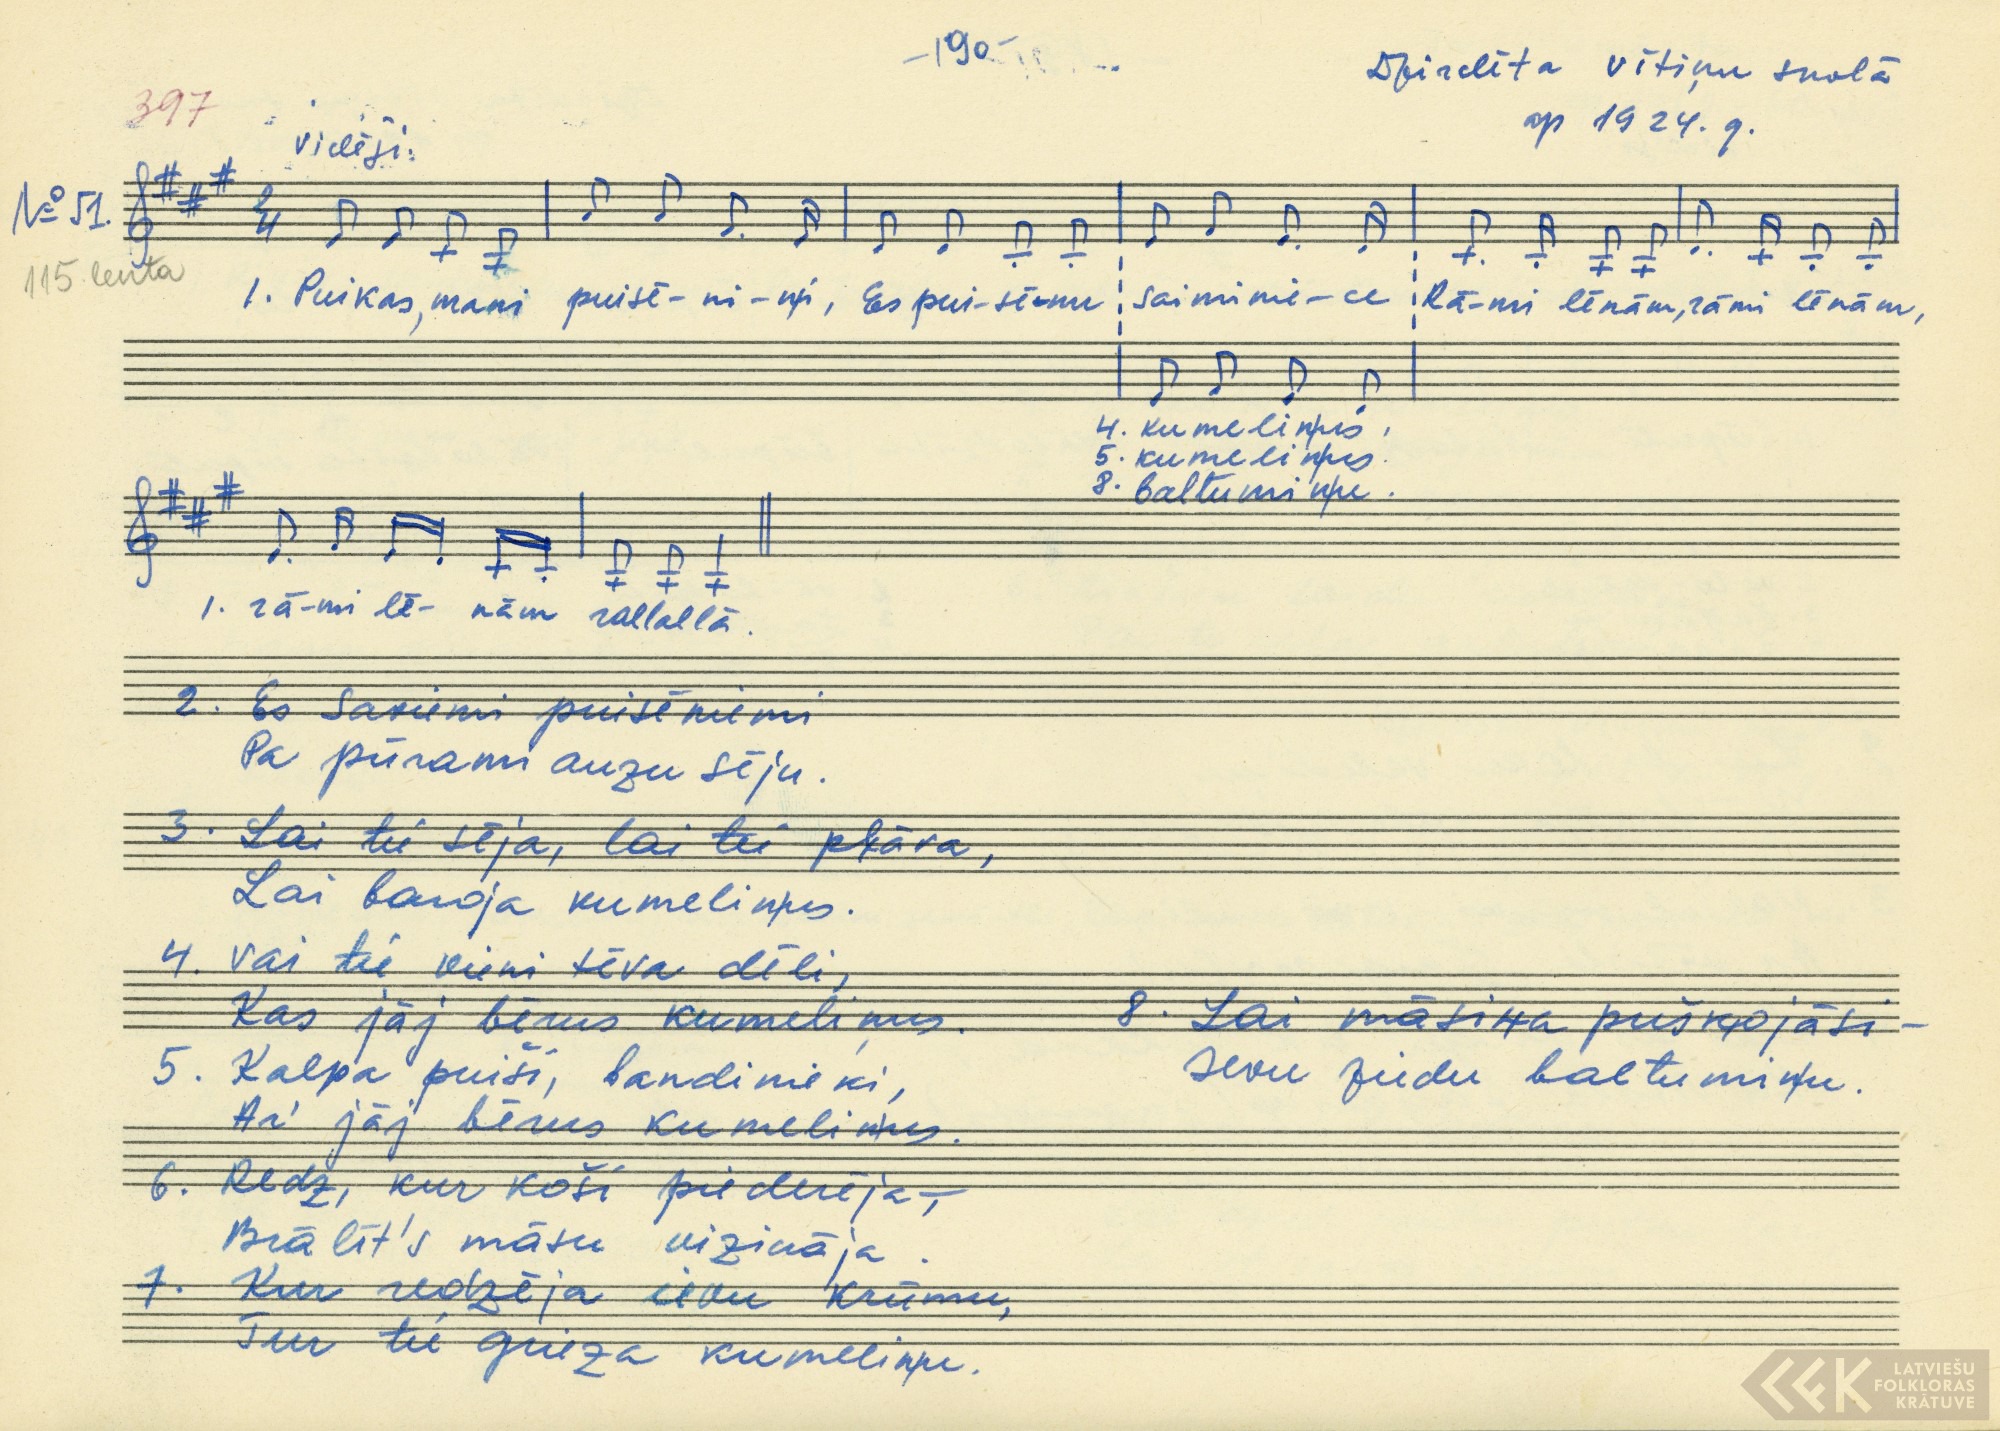 -190-
Dzirdēta Vītiņu skolā
ap 1924. g.
397
vidēji.
№ 51.
115. lenta
1. Puikas, mani puisē-ni-ņi, Es pui-sēnu saiminie-ce Rā-mi lēnām, rāmi lēnām,
4. kumeliņus,
5. kumeliņus.
8. baltumiņu.
1. rā-mi lē- nām rallallā.
2. Es saviemi puisēniemi
Pa pūrami auzu sēju.
3. Lai tie sēja, lai tie pļāva,
Lai baroja kumeliņus.
4. Vai tie vieni tēva dēli,
Kas jāj bērus kumeliņus.
5. Kalpa puiši, bandinieki,
Ar' jāj bērus kumeliņus.
6. Redz, kur koši piederēja,-
Brālīt's māsu vizināja.
7. Kur redzēja ievu krūmu,
Tur tie grieza kumeliņu.
8. Lai māsiņa puškojāsi-
Ievu ziedu baltumiņu.
LATVIEŠU
FOLKLORAS
KRĀTUVE